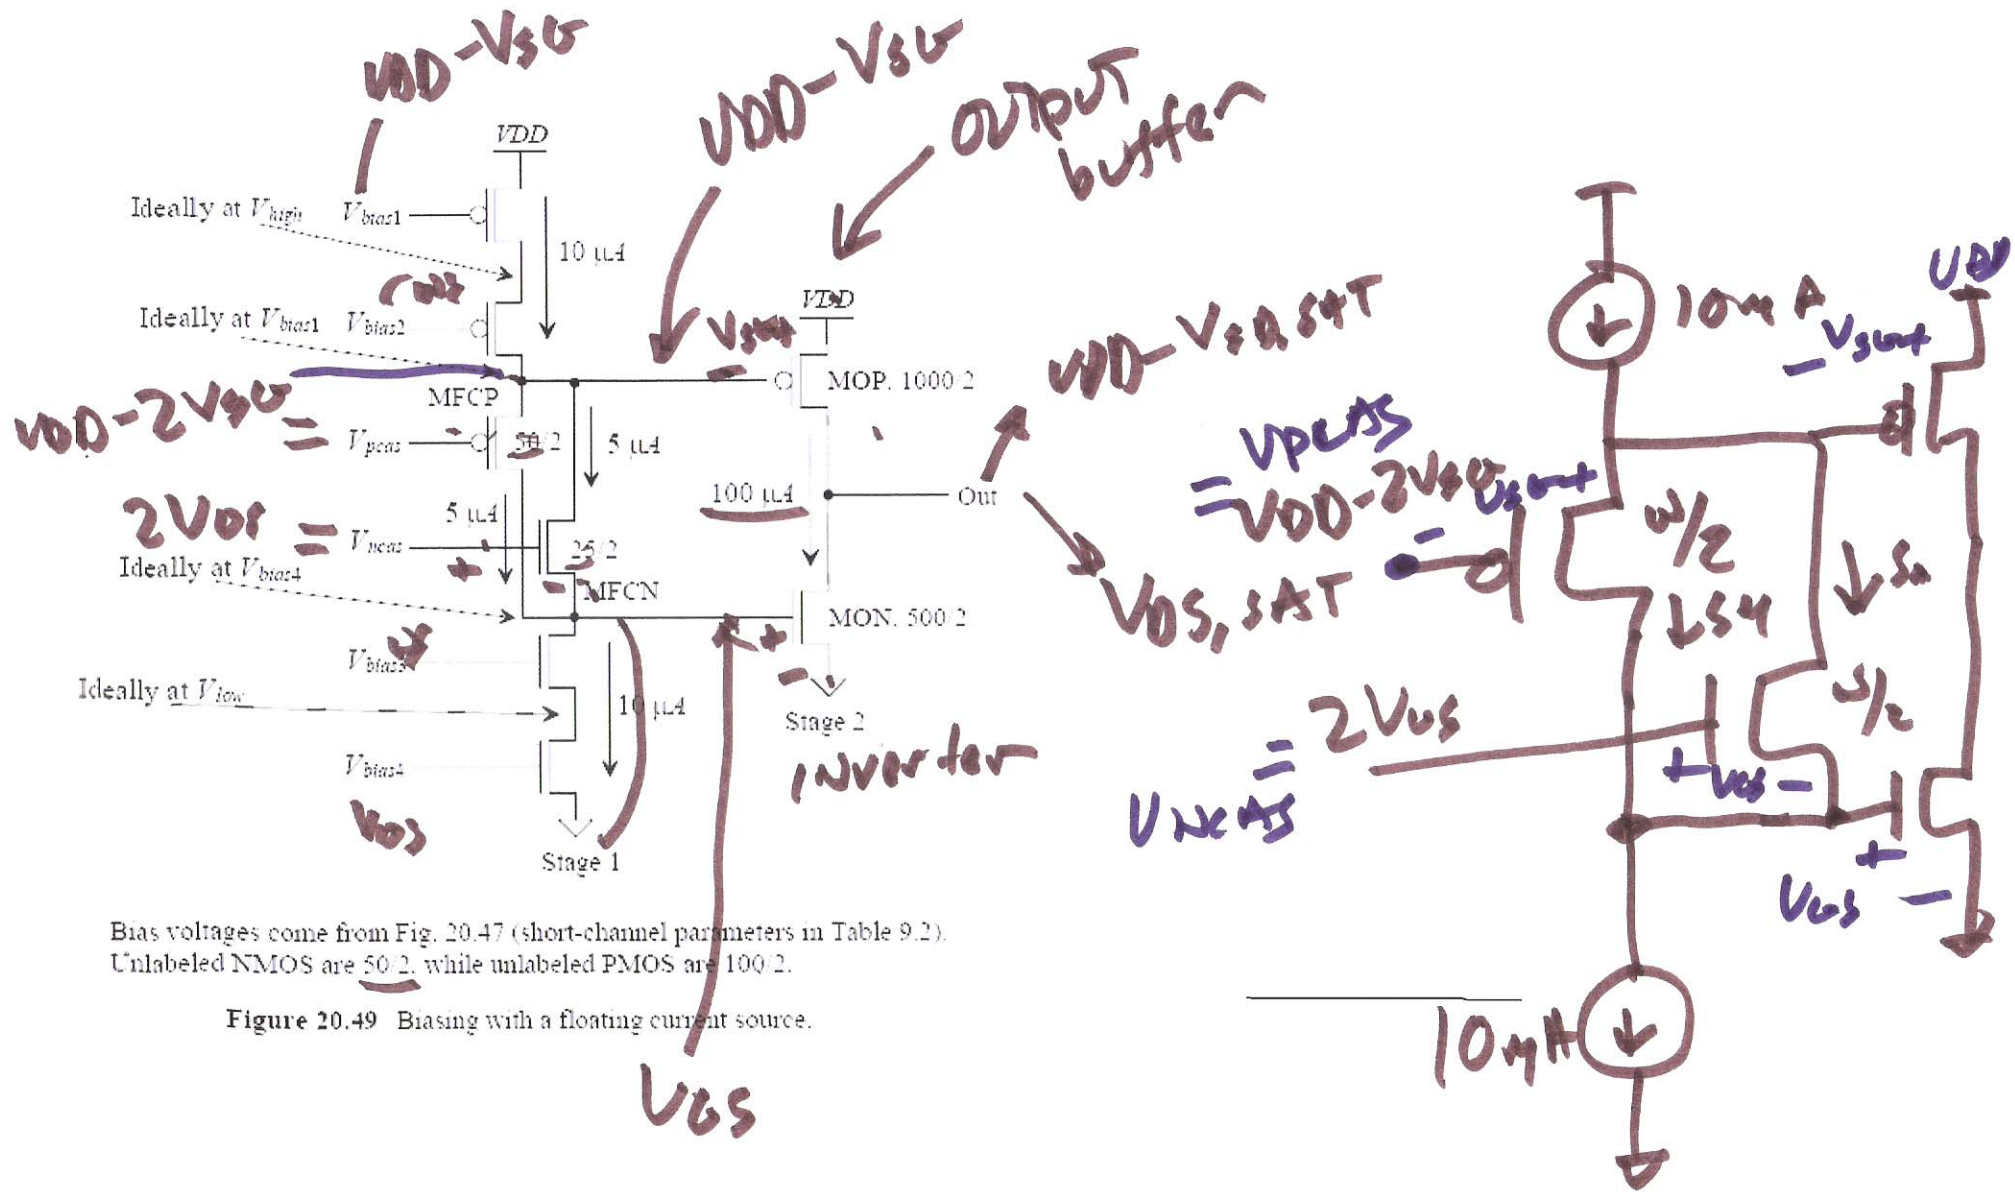 VDD-VSG
VDD-VSG
OUTPUT
buffer
VDD
Ideally at Vhigh
Vbias1
10 μA
Ideally at Vbias1
Vbias2
VDD
MFCP
MOP, 1000/2
VDD-VSD,SAT
VDD-2VSG =
Vpcas
50/2
5 μA
5 μA
100 μA
Out
2VGS =
Vncas
25/2
MFCN
Ideally at Vbias4
MON, 500/2
VDS,SAT
Vbias3
Ideally at Vlow
10 μA
Stage 2
inverter
Vbias4
VGS
Stage 1
Bias voltages come from Fig. 20.47 (short-channel parameters in Table 9.2).
Unlabeled NMOS are 50/2, while unlabeled PMOS are 100/2.
Figure 20.49 Biasing with a floating current source.
VGS
VDD
10μA
VPCAS
= VDD-2VSG
W/2
W/2
2VGS
=
VNCAS
+ VGS -
+
VGS -
10μA